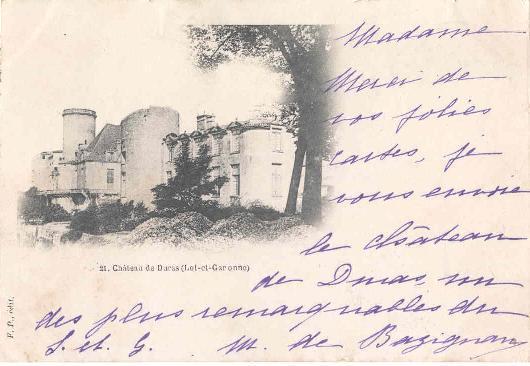 Madame
Merci de
vos jolies
cartes, je
vous envoie
le château
de Duras, un
des plus remarquables du
L. et G. M. de Bazignan
21. Château de Duras (Lot-et-Garonne)
F. P., édit.